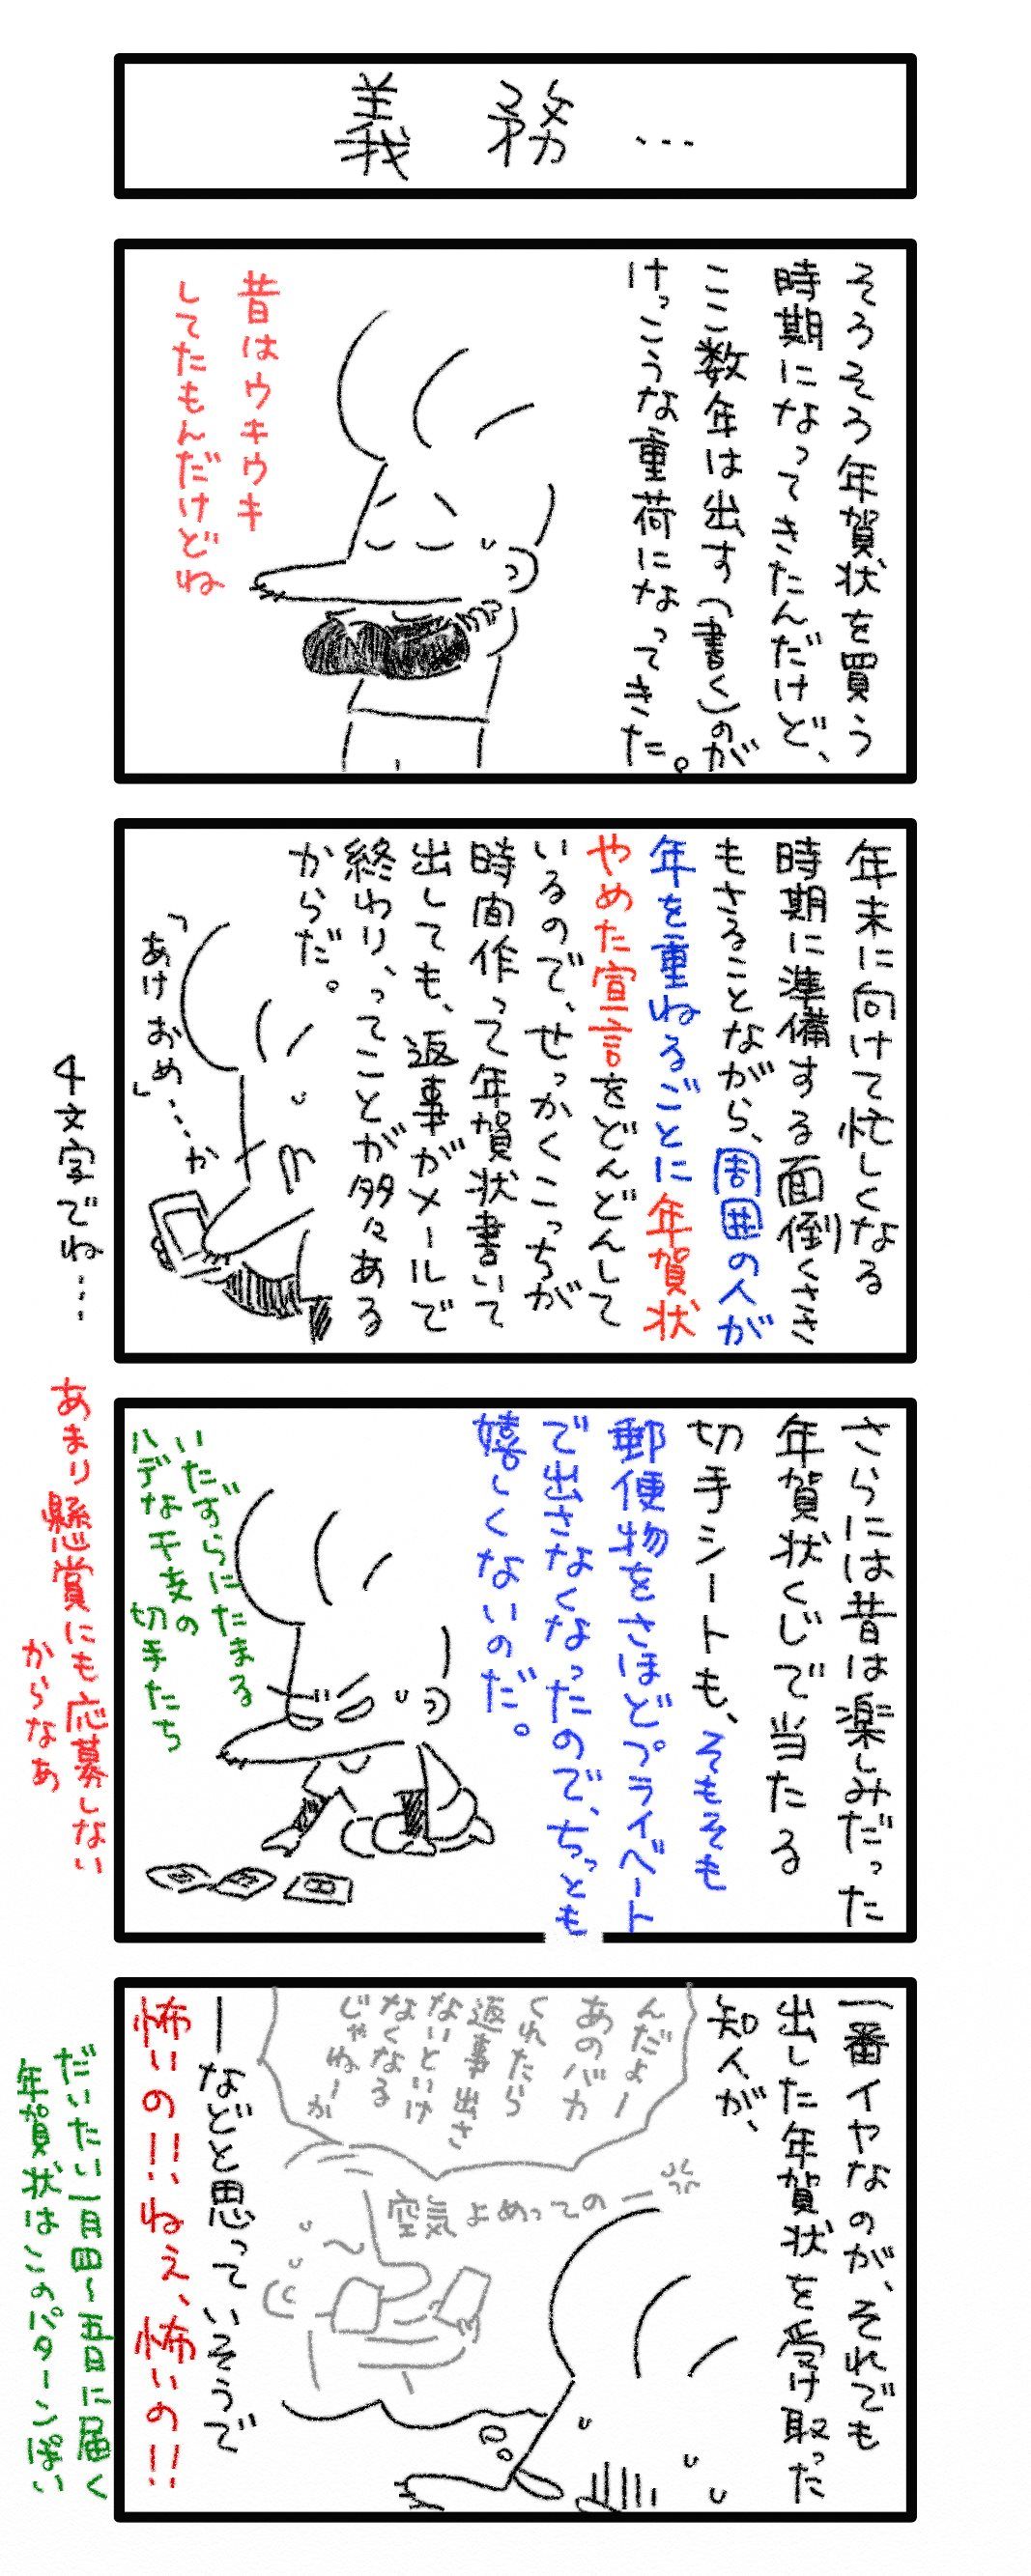 義務…
そろそろ年賀状を買う
時期になってきたんだけど、
ここ数年は出す（書く）のが
けっこうな重荷になってきた。
昔はウキウキ
してたもんだけどね
年末に向けて忙しくなる
時期に準備する面倒くささ
もさることながら、周囲の人が
年を重ねるごとに年賀状
やめた宣言をどんどんして
いるので、せっかくこっちが
時間作って年賀状書いて
出しても、返事がメールで
終わり、ってことが多々ある
からだ。
「あけおめ」…か
4文字でね…
さらには昔は楽しみだった
年賀状くじで当たる
切手シートも、そもそも
郵便物をさほどプライベート
で出さなくなったので、ちっとも
嬉しくないのだ。
いたずらにたまる
ハデな干支の
切手たち
あまり懸賞にも応募しない
からなあ
一番イヤなのが、それでも
出した年賀状を受け取った
知人が、
んだよー
あのバカ
くれたら
返事出さ
ないといけ
なくなる
じゃねーか
空気よめってのー
ーなどと思っていそうで
怖いの!!ねえ、怖いの!!
だいたい一月四〜五日に届く
年賀状はこのパターンぽい